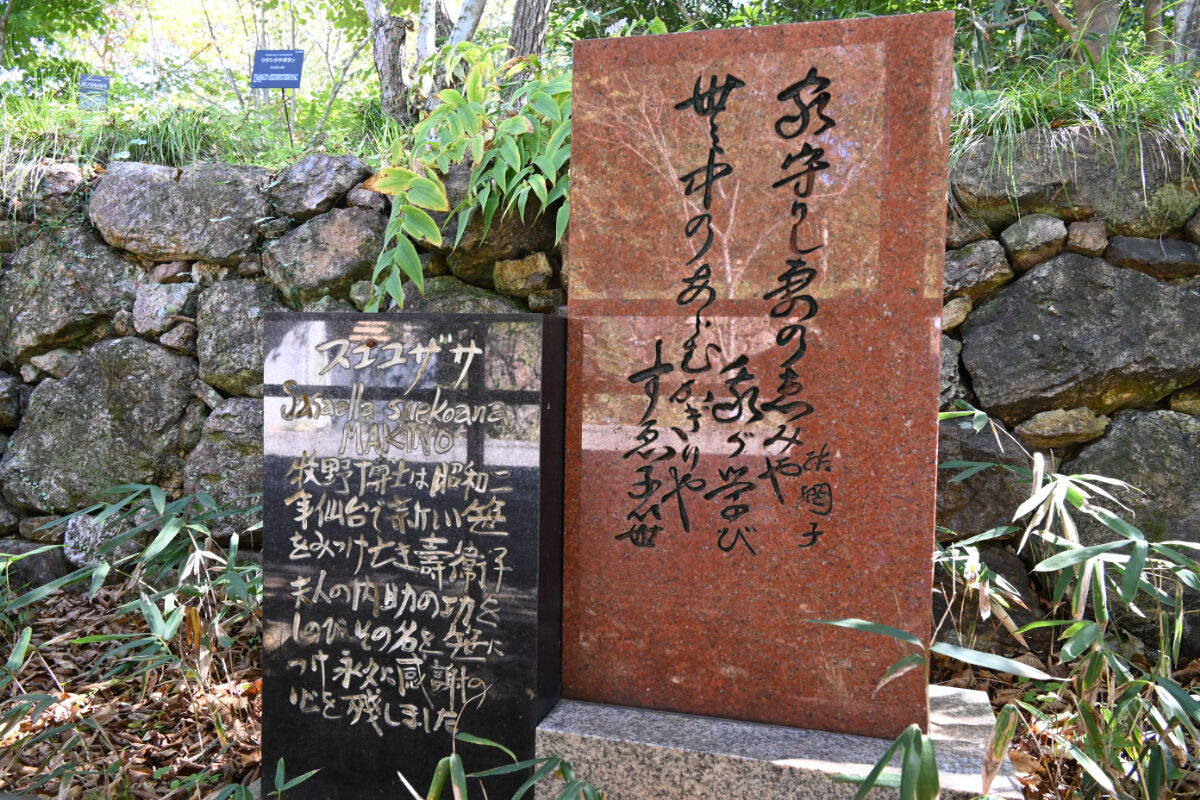 ツクシクサボタン
家守りし妻の恵みや我が学び
世の中のあらむかぎりやすゑ子笹
結網子
スエコザサ
Sasaella suekoana
MAKINO
牧野博士は昭和二
年仙台で新しい笹
をみつけ亡き壽衛子
夫人の内助の功を
しのびその名を笹に
つけ永久に感謝の
心を残しました